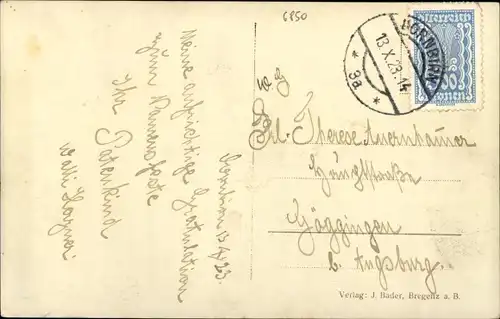 6850
DORNBIRN
13.X.23.14
* 3a *
Österreich
Dornbirn 13.X.23.
Meine aufrichtige Gratulation
zum Namensfeste
Ihr Patenkind
Frl. Therese Auernhammer
Göggingen
b. Augsburg.
Verlag: J. Bader, Bregenz a. B.